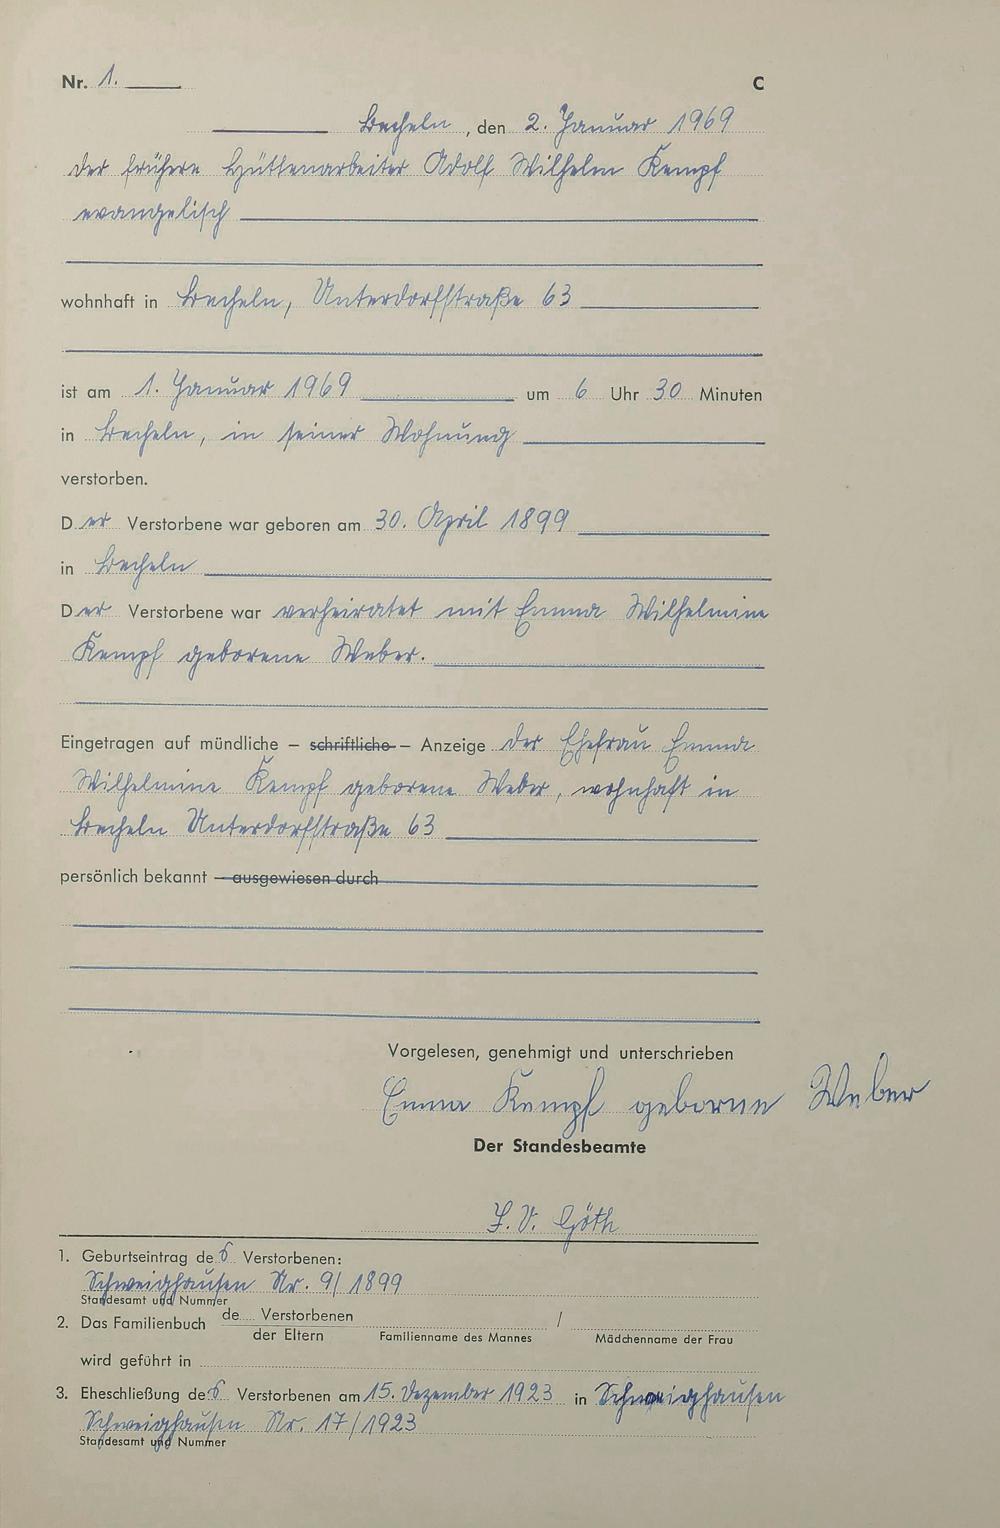 Nr. 1. C
Becheln, den 2. Januar 1969
der frühere Hüttenarbeiter Adolf Wilhelm Kempf
evangelisch
wohnhaft in Becheln, Unterdorfstraße 63
ist am 1. Januar 1969 um 6 Uhr 30 Minuten
in Becheln, in seiner Wohnung
verstorben.
Der Verstorbene war geboren am 30. April 1899
in Becheln
Der Verstorbene war verheiratet mit Emma Wilhelmine
Kempf geborene Weber.
Eingetragen auf mündliche – schriftliche – Anzeige der Ehefrau Emma
Wilhelmine Kempf geborene Weber, wohnhaft in
Becheln Unterdorfstraße 63
persönlich bekannt – ausgewiesen durch
Vorgelesen, genehmigt und unterschrieben
Emma Kempf geborene Weber
Der Standesbeamte
I. V. Göth
1. Geburtseintrag des Verstorbenen:
Schweighausen Nr. 9/1899
Standesamt und Nummer
2. Das Familienbuch de Verstorbenen /
der Eltern Familienname des Mannes Mädchenname der Frau
wird geführt in
3. Eheschließung des Verstorbenen am 15. Dezember 1923 in Schweighausen
Schweighausen Nr. 17/1923
Standesamt und Nummer